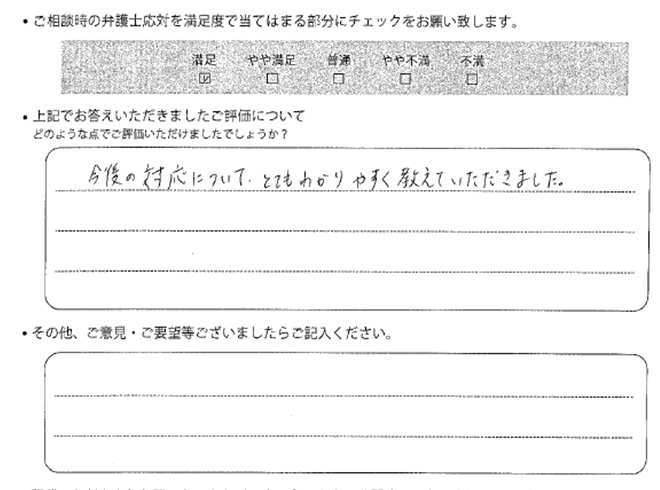 ・ご相談時の弁護士応対を満足度で当てはまる部分にチェックをお願い致します。
満足 やや満足 普通 やや不満 不満
☑ ☐ ☐ ☐ ☐
・上記でお答えいただきましたご評価について
どのような点でご評価いただけましたでしょうか？
今後の対応について、とてもわかりやすく教えていただきました。
・その他、ご意見・ご要望等ございましたらご記入ください。